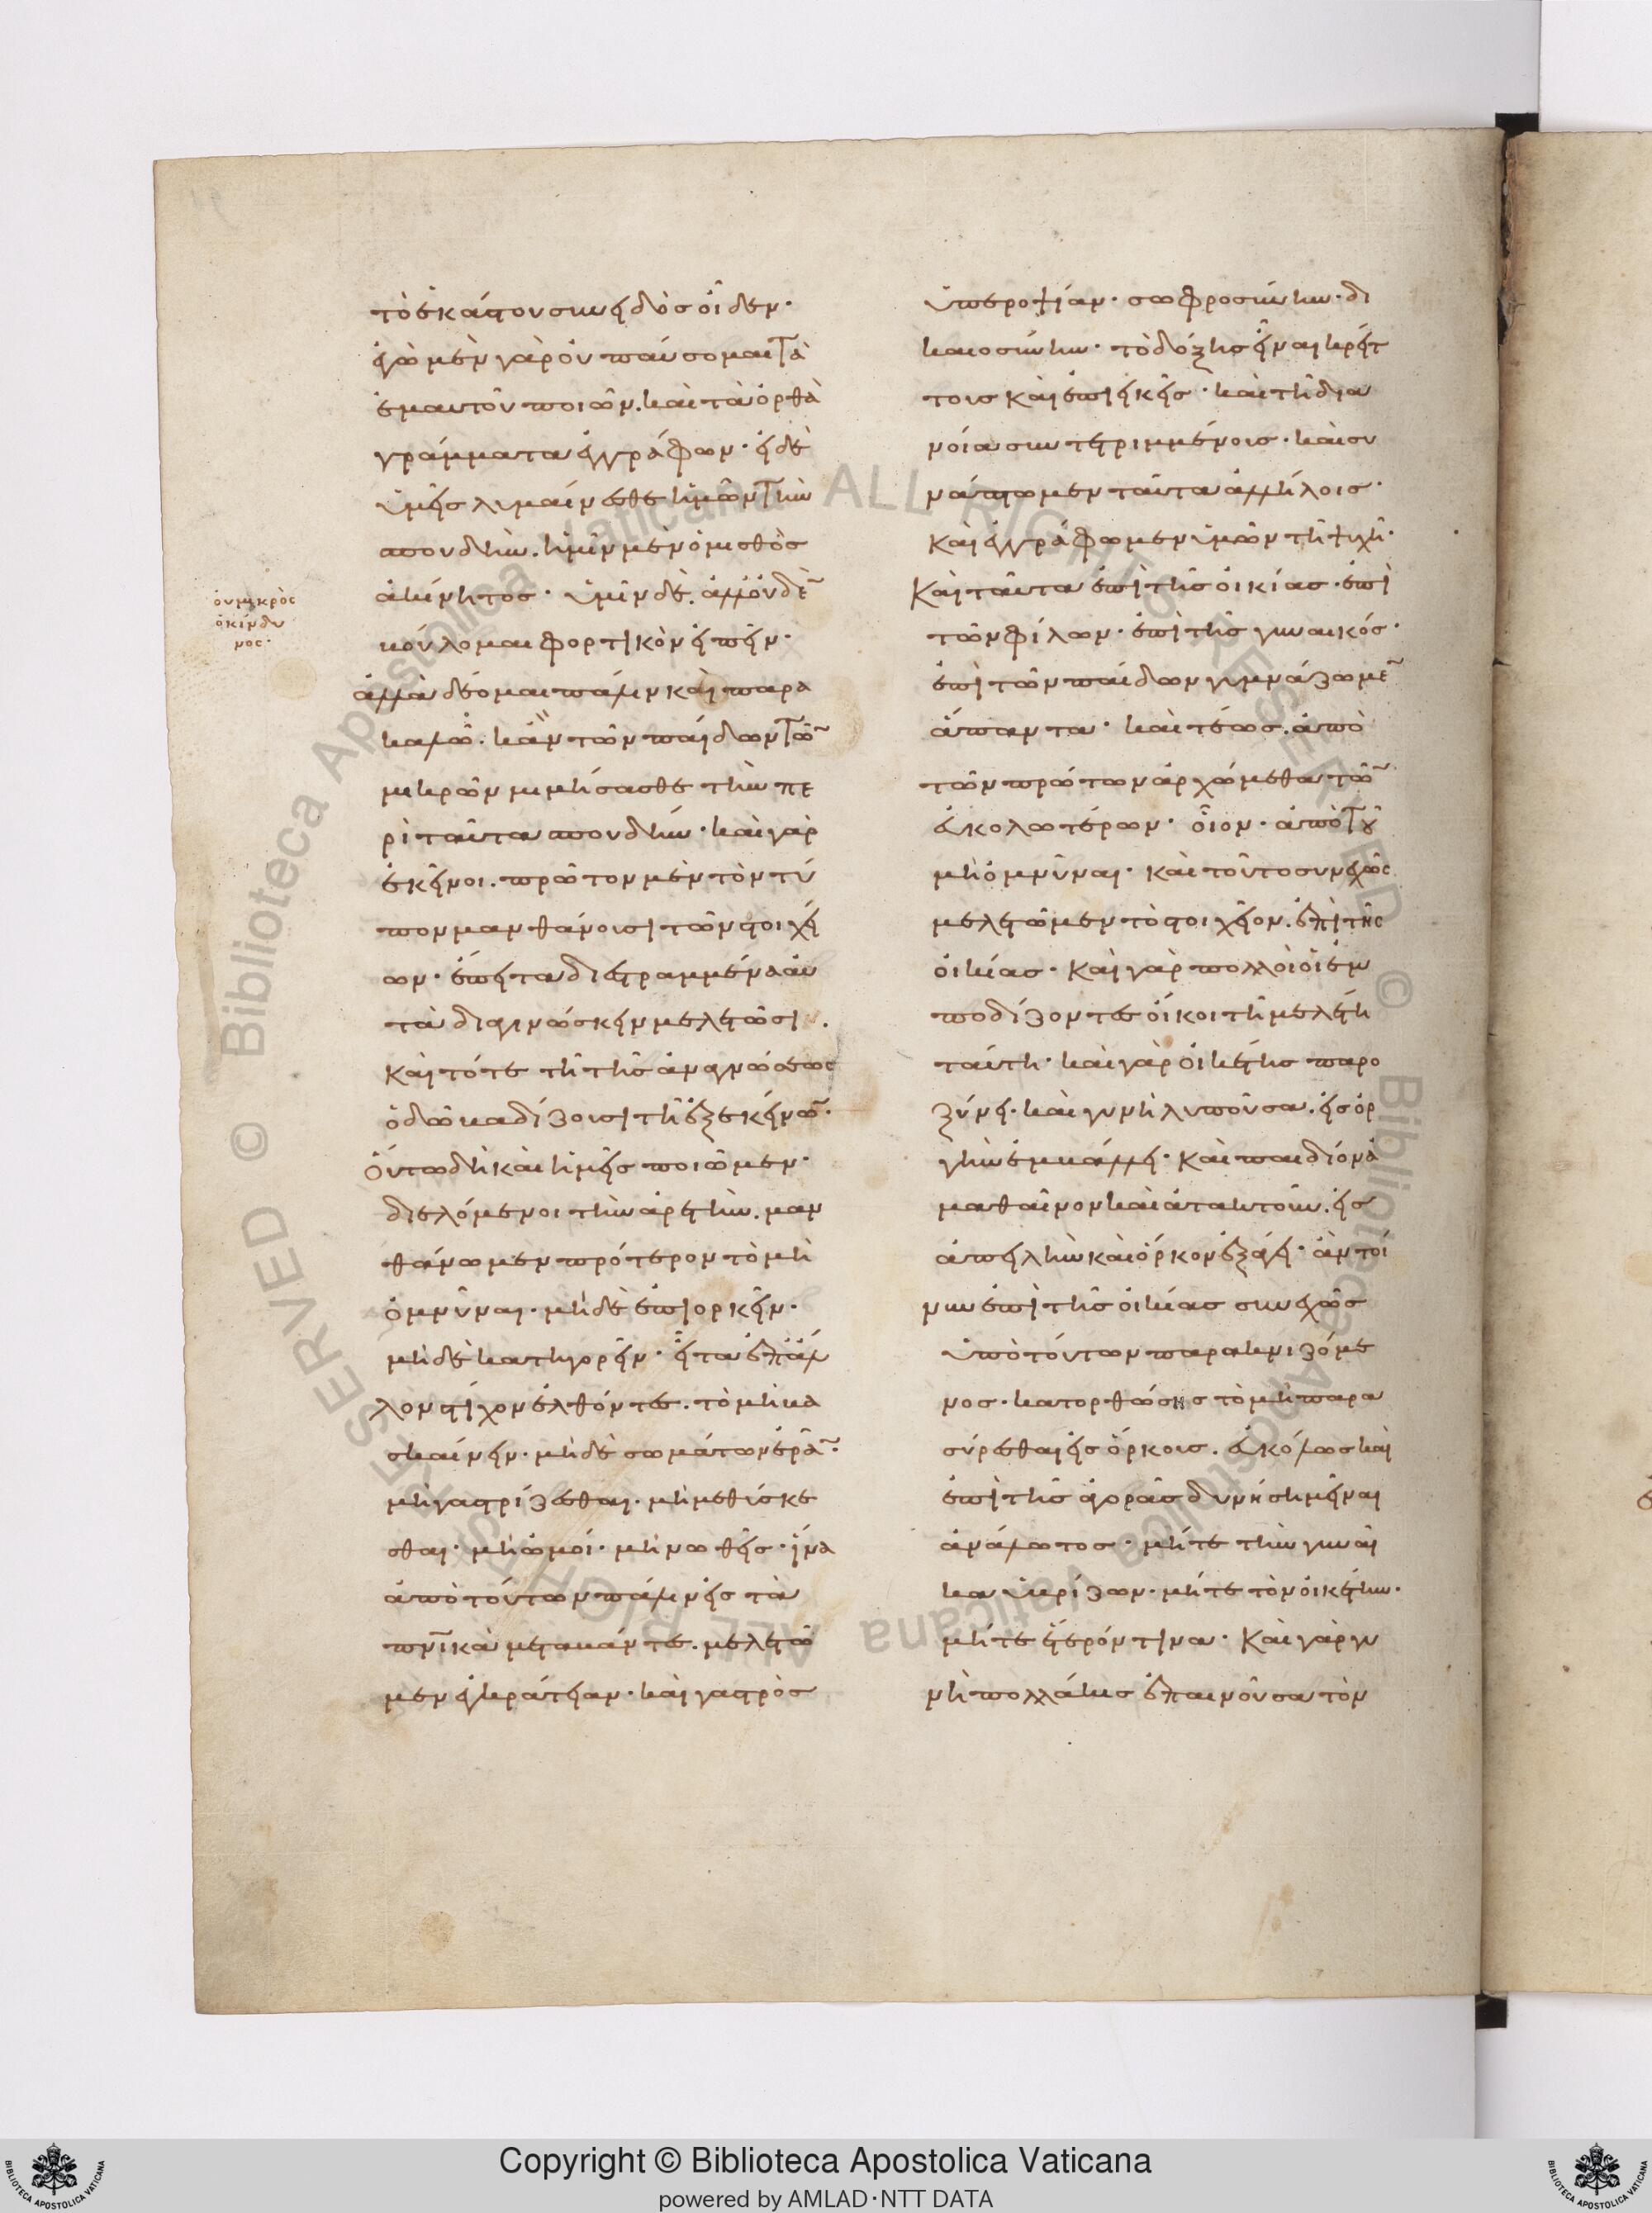 τὸ ἑκάστου συνειδὸς οἶδεν·
ἐγὼ μὲν γὰρ οὐ παύσομαι τὰ
ἐμαυτοῦ ποιῶν. καὶ τὰ ὀρθὰ
γράμματα ἐγγράφων· εἰ δὲ
ὑμεῖς λυμαίνεσθε ἡμῶν τὴν
σπουδήν. ἡμῖν μὲν ὁ μισθὸς
ἀκίνητος· ὑμῖν δὲ. ἀλλ' οὐδὲ
βούλομαι φορτικὸν εἰπεῖν·
ἀλλὰ δέομαι πάλιν καὶ παρα
καλῶ. κἂν τῶν παίδων τῶν
μικρῶν μιμήσασθε τὴν πε
ρὶ ταῦτα σπουδήν· καὶ γὰρ
ἐκεῖνοι. πρῶτον μὲν τὸν τύ
πον μανθάνουσι τῶν στοιχεί
ων· ἔπειτα διεστραμμένα αὐ
τὰ διαγινώσκειν μελετῶσι.
καὶ τότε τῇ τῆς ἀναγνώσεως
ὁδῷ βαδίζουσι τῇ ἐξ ἐκείνων·
Οὕτω δὴ καὶ ἡμεῖς ποιῶμεν·
διελόμενοι τὴν ἀρετὴν. μαν
θάνωμεν πρότερον τὸ μὴ
ὀμνῦναι· μὴ δὲ ἐπιορκεῖν·
μὴ δὲ κατηγορεῖν· εἶτα ἐπ' ἄλ
λον στίχον ἐλθόντες. τὸ μὴ βα
σκαίνειν· μὴ δὲ σωμάτων ἐρᾶν·
μὴ γαστρίζεσθαι· μὴ μεθύσκε
σθαι· μὴ ὠμοί· μὴ νωθεῖς· ἵνα
ἀπὸ τούτων πάλιν εἰς τὰ
πνικὰ μεταβάντες. μελετῶ
μεν ἐγκράτειαν· καὶ γαστρὸς
οὐ μικρὸς
ὁ κίνδυ
νος·
ὑπεροψίαν· σωφροσύνην· δι
καιοσύνην· τὸ δόξης εἶναι κρείτ
τους καὶ ἐπιεικεῖς· καὶ τῇ δια
νοία συντετριμμένους· καὶ συ
νάπτωμεν ταῦτα ἀλλήλοις·
καὶ ἐγγράφωμεν ὑμῶν τῇ ψυχῇ·
Καὶ ταῦτα ἐπὶ τῆς οἰκίας· ἐπὶ
τῶν φίλων· ἐπὶ τῆς γυναικός·
ἐπὶ τῶν παίδων γυμνάζωμεν
ἅπαντα· καὶ τέως. ἀπὸ
τῶν πρώτων ἀρχώμεθα τῶν
εὐκολωτέρων· οἷον· ἀπὸ τοῦ
μὴ ὀμνύναι· καὶ τοῦτο συνεχῶς
μελετῶμεν τὸ στοιχεῖον. ἐπὶ τῆς
οἰκίας· καὶ γὰρ πολλοὶ οἱ ἐμ
ποδίζοντες οἴκοι τῇ μελέτῃ
ταύτῃ· καὶ γὰρ οἰκέτης παρο
ξύνει· καὶ γυνὴ λυποῦσα. εἰς ὀρ
γὴν ἐμβάλλει· καὶ παιδίον ἀ
μαθαῖνον καὶ ἀτακτοῦν. εἰς
ἀπειλὴν καὶ ὅρκον ἐξάγει· ἂν τοί
νυν ἐπὶ τῆς οἰκίας συνεχῶς
ὑπὸ τούτων παρακνιζόμε
νος· κατορθώσῃς τὸ μὴ παρα
σύρεσθαι εἰς ὅρκους. εὐκόλως καὶ
ἐπὶ τῆς ἀγορᾶς δυνήσῃ μεῖναι
ἀνάλωτος· μήτε τὴν γυναῖ
κα ὑβρίζων· μήτε τὸν οἰκέτην·
μήτε ἕτερόν τινα· καὶ γὰρ γυ
νὴ πολλάκις ἐπαινοῦσα τὸν
Copyright © Biblioteca Apostolica Vaticana
powered by AMLAD·NTT DATA